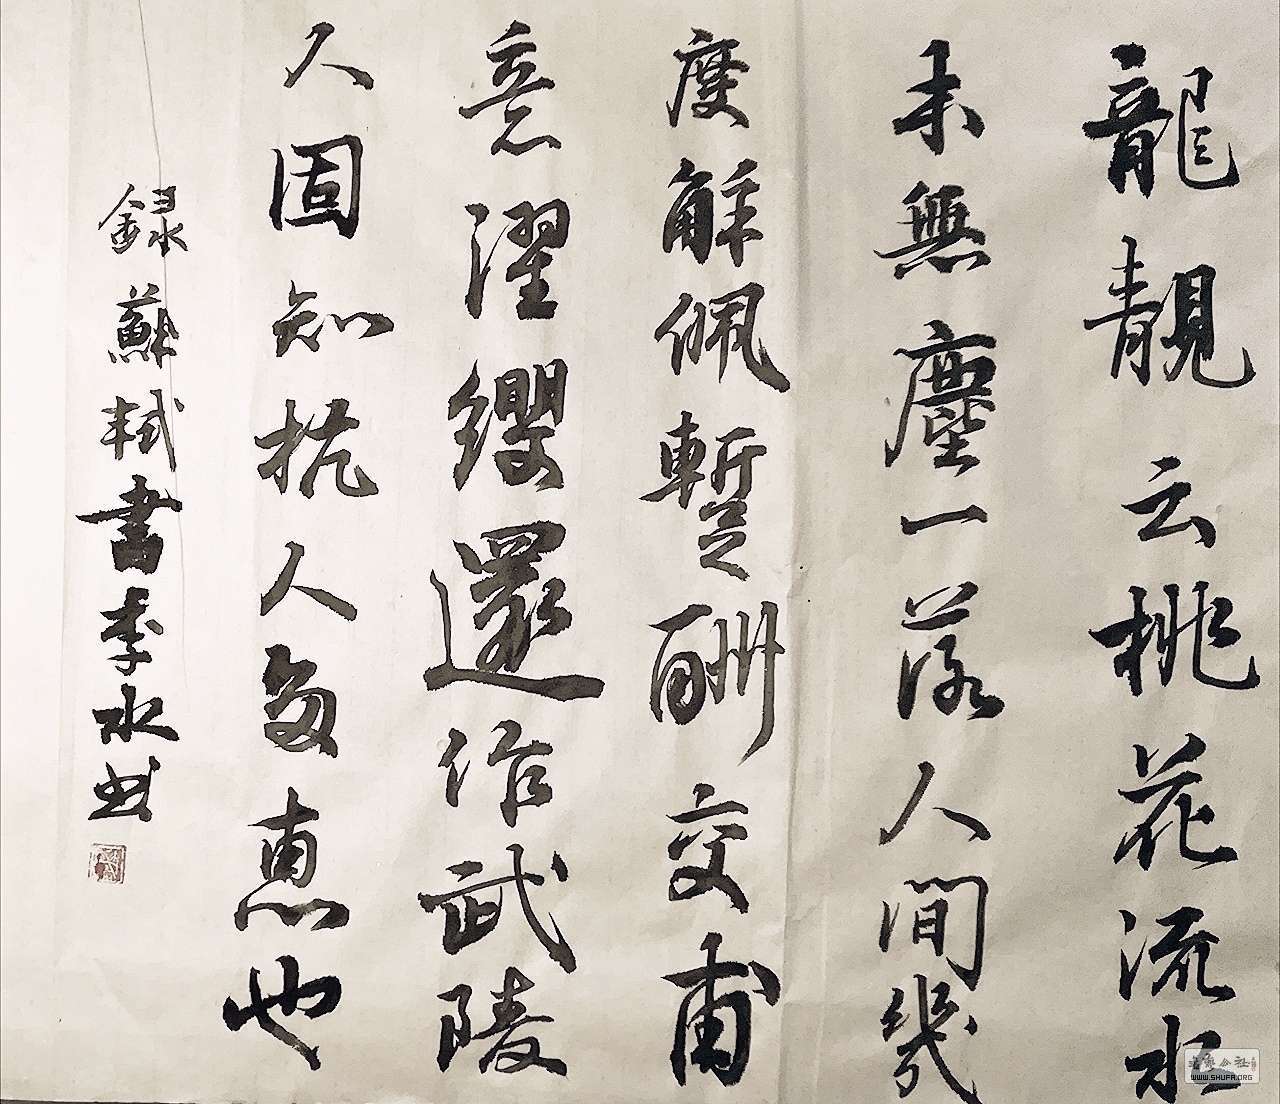 龍靚云桃花流水
未無塵一落人間幾
度解佩暫酬交甫
意濯纓還作武陵
人固知抗人多惠也
錄蘇軾書李水书
WWW.SHUFA.ORG